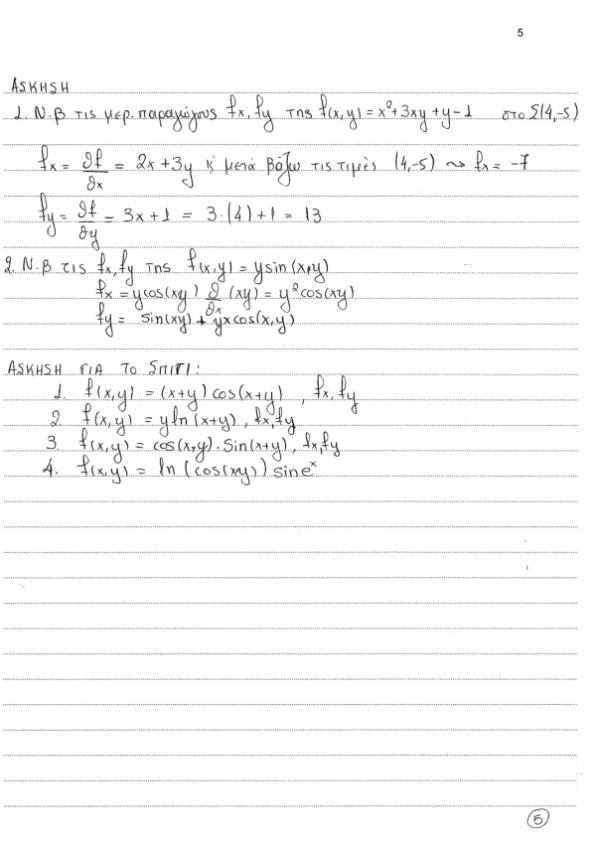 5
ΑΣΚΗΣΗ
1. Ν.β τις μερ. παραγώγους fx, fy της f(x,y) = x²+3xy+y-1 στο Σ(4,-5)
fx = ∂f/∂x = 2x+3y κ' μετά βάζω τις τιμές (4,-5) ⤳ fx = -7
fy = ∂f/∂y = 3x+1 = 3·(4)+1 = 13
2. Ν.β τις fx, fy της f(x,y) = ysin(x,y)
fx = ycos(xy) ∂/∂x (xy) = y²cos(xy)
fy = sin(xy) + yxcos(x,y)
ΑΣΚΗΣΗ ΓΙΑ ΤΟ ΣΠΙΤΙ:
1. f(x,y) = (x+y) cos(x+y) , fx, fy
2. f(x,y) = yln(x+y), fx, fy
3. f(x,y) = cos(x,y)·sin(x+y), fx, fy
4. f(x,y) = ln(cos(xy)) sin e^x
5